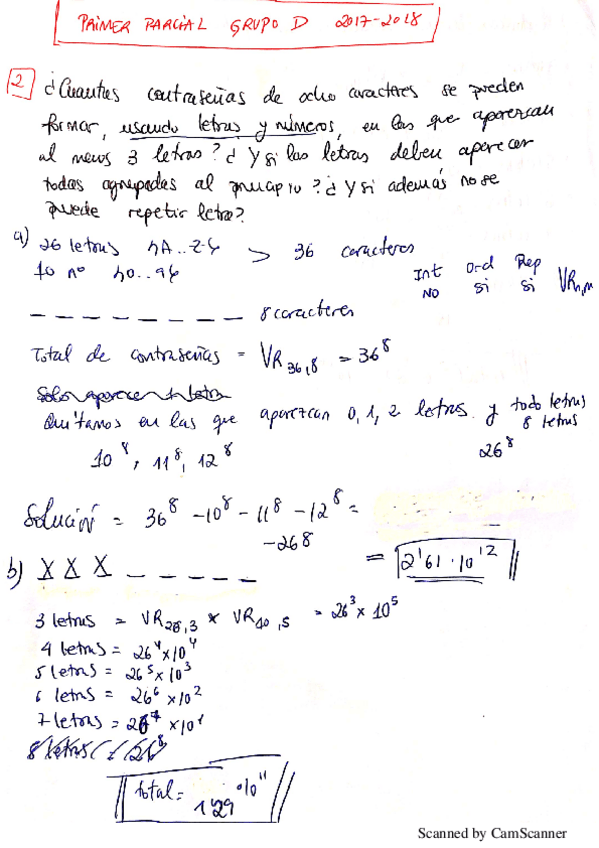 PRIMER PARCIAL GRUPO D 2017-2018
2 ¿Cuantas contraseñas de ocho caracteres se pueden
formar, usando letras y números, en las que aparezcan
al menos 3 letras? ¿Y si las letras deben aparecer
todas agrupadas al principio? ¿Y si además no se
puede repetir letra?
a) 26 letras {A..Z} > 36 caracteres
10 nº {0..9}
Int Ord Rep
No Si Si VRn,m
_ _ _ _ _ _ _ _ 8 caracteres
Total de contraseñas = VR36,8 = 36^8
Solo aparecen letra
Quitamos en las que aparezcan 0, 1, 2 letras y todo letras
8 letras
10^8, 11^8, 12^8 26^8
Solución = 36^8 - 10^8 - 11^8 - 12^8 =
- 26^8
= 2'61·10^12
b) X X X _ _ _ _ _
3 letras = VR26,3 × VR10,5 = 26^3 × 10^5
4 letras = 26^4 × 10^4
5 letras = 26^5 × 10^3
6 letras = 26^6 × 10^2
7 letras = 26^7 × 10^1
8 letras = 26^8
total = 1'29·10^11
Scanned by CamScanner